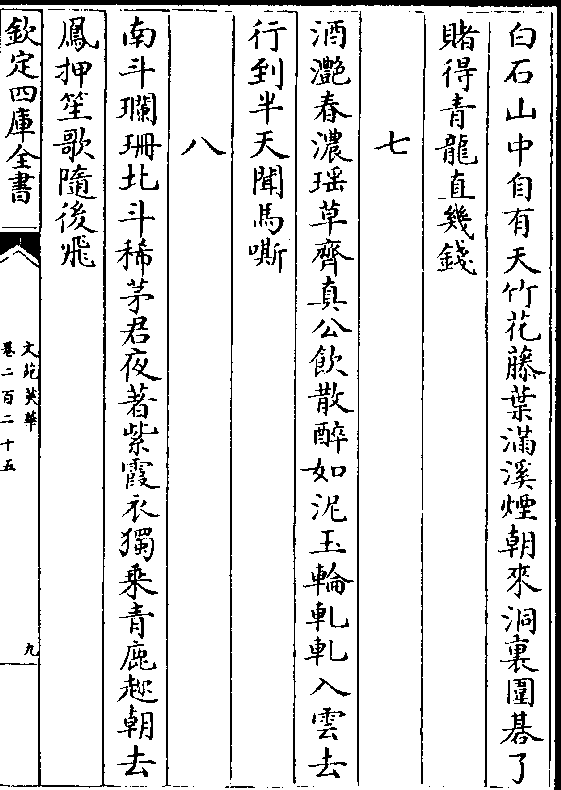 白石山中自有天竹花藤葉滿溪煙朝來洞裏圍碁了
賭得青龍直幾錢
七
酒灔春濃瑶草齊真公飲散醉如泥玉輪軋軋入雲去
行到半天聞馬嘶
八
南斗瓓珊北斗稀茅君夜著紫霞衣獨乘青鹿趂朝去
鳳押笙歌隨後飛
欽定四庫全書
文苑英華
卷二百二十五
九